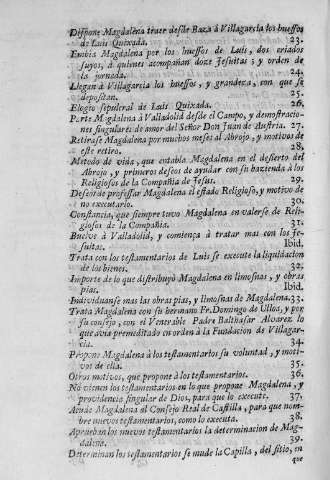 Dispone Magdalena traer desde Baza à Villagarcia los huessos
de Luis Quixada. 23.
Embia Magdalena por los huessos de Luis, dos criados
suyos, à quienes acompañan doze Jesuitas; y orden de
la jornada. 24.
Llegan à Villagarcia los huessos, y grandeza, con que se
depositan. 25.
Elogio sepulcral de Luis Quixada. 26.
Parte Magdalena à Valladolid desde el Campo, y demostraciones
singulares de amor del Señor Don Juan de Austria. 27.
Retirase Magdalena por muchos meses al Abrojo, y motivos de
este retiro. 28.
Metodo de vida, que entabla Magdalena en el desierto del
Abrojo, y primeros deseos de ayudar con su hazienda à los
Religiosos de la Compañia de Jesus. 29.
Deseos de professar Magdalena el estado Religioso, y motivo de
no executarlo. 30.
Constancia, que siempre tuvo Magdalena en valerse de Reli-
giosos de la Compañia. 31.
Buelve à Valladolid, y comiença à tratar mas con los Je-
suitas. Ibid.
Trata con los testamentarios de Luis se execute la liquidacion
de los bienes. 32.
Importe de lo que distribuyò Magdalena en limosnas, y obras
pias. Ibid.
Individuanse mas las obras pias, y limosnas de Magdalena. 33.
Trata Magdalena con su hermano Fr. Domingo de Ulloa, y por
su consejo, con el Venerable Padre Balthasar Alvarez lo
que avia premeditado en orden à la Fundacion de Villagar-
cia. 34.
Propone Magdalena à los testamentarios su voluntad, y moti-
vos de ella. 35.
Otros motivos, que propone à los testamentarios. 36.
No vienen los testamentarios en lo que propone Magdalena, y
providencia singular de Dios, para que lo execute. 37.
Acude Magdalena al Consejo Real de Castilla, para que nom-
bre nuevos testamentarios, como lo executa. 38.
Aprueban los nuevos testamentarios la determinacion de Mag-
dalena. 39.
Determinan los testamentarios se mude la Capilla, del sitio, en
que